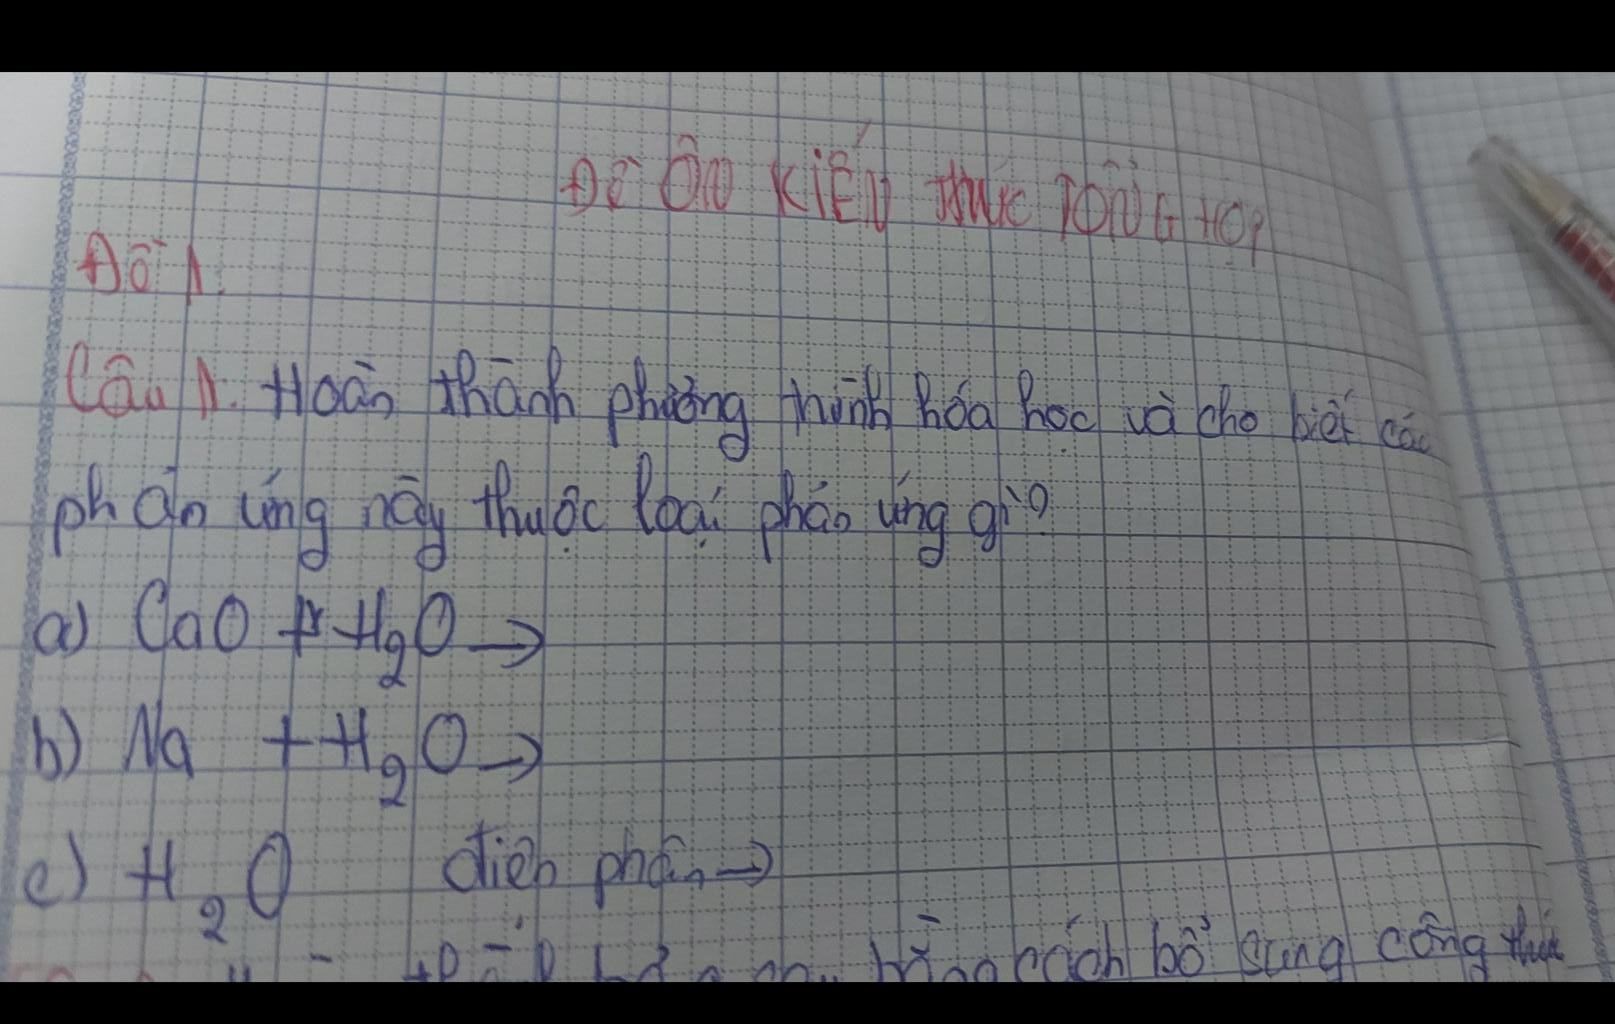 ĐỀ ÔN KIẾN THỨC TỔNG HỢP
Đề 1.
Câu 1. Hoàn thành phương thình hóa học và cho biết các
phản ứng này thuộc loại phản ứng gì?
a) CaO + H₂O →
b) Na + H₂O →
c) H₂O điện phân →
bằng cách bổ sung công thức